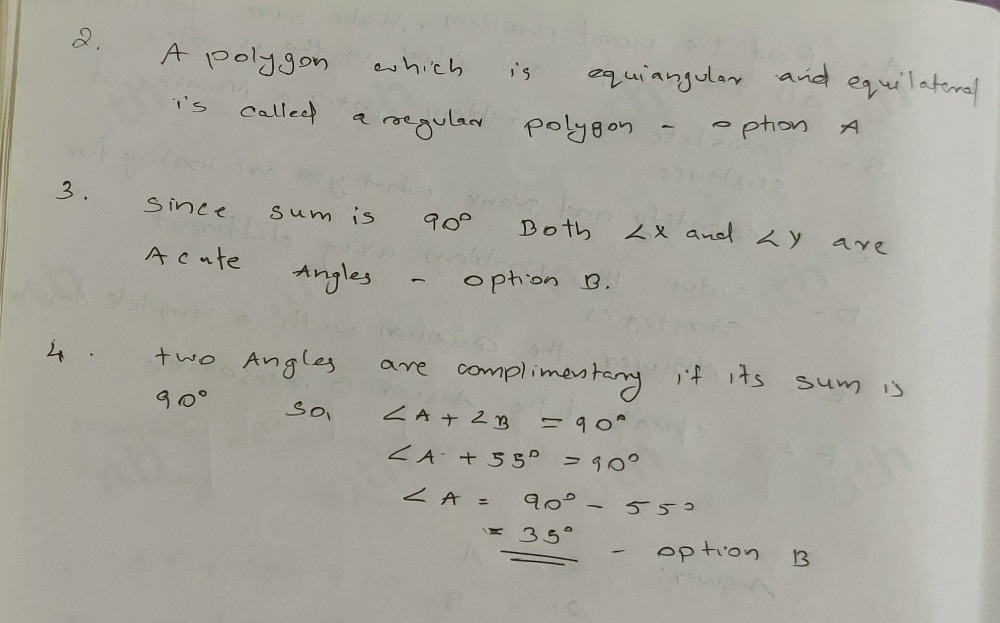 2. A polygon which is equiangular and equilateral
is called a regular polygon - option A
3. Since sum is 90° Both ∠X and ∠Y are
Acute Angles - option B.
4. two Angles are complimentary if its sum is
90° So, ∠A + ∠B = 90°
∠A + 55° = 90°
∠A = 90° - 55°
= 35° - option B